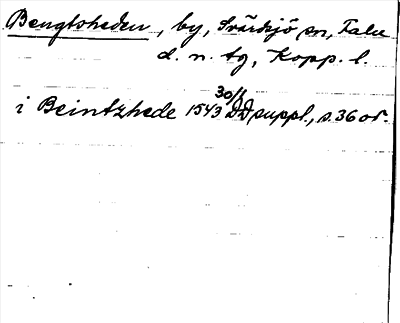 Bengtsheden, by, Svärdsjö sn, Falu
d. n. tg, Kopp. l.
i Beintzhede 1543 30/1 DD, suppl., s. 36 or.